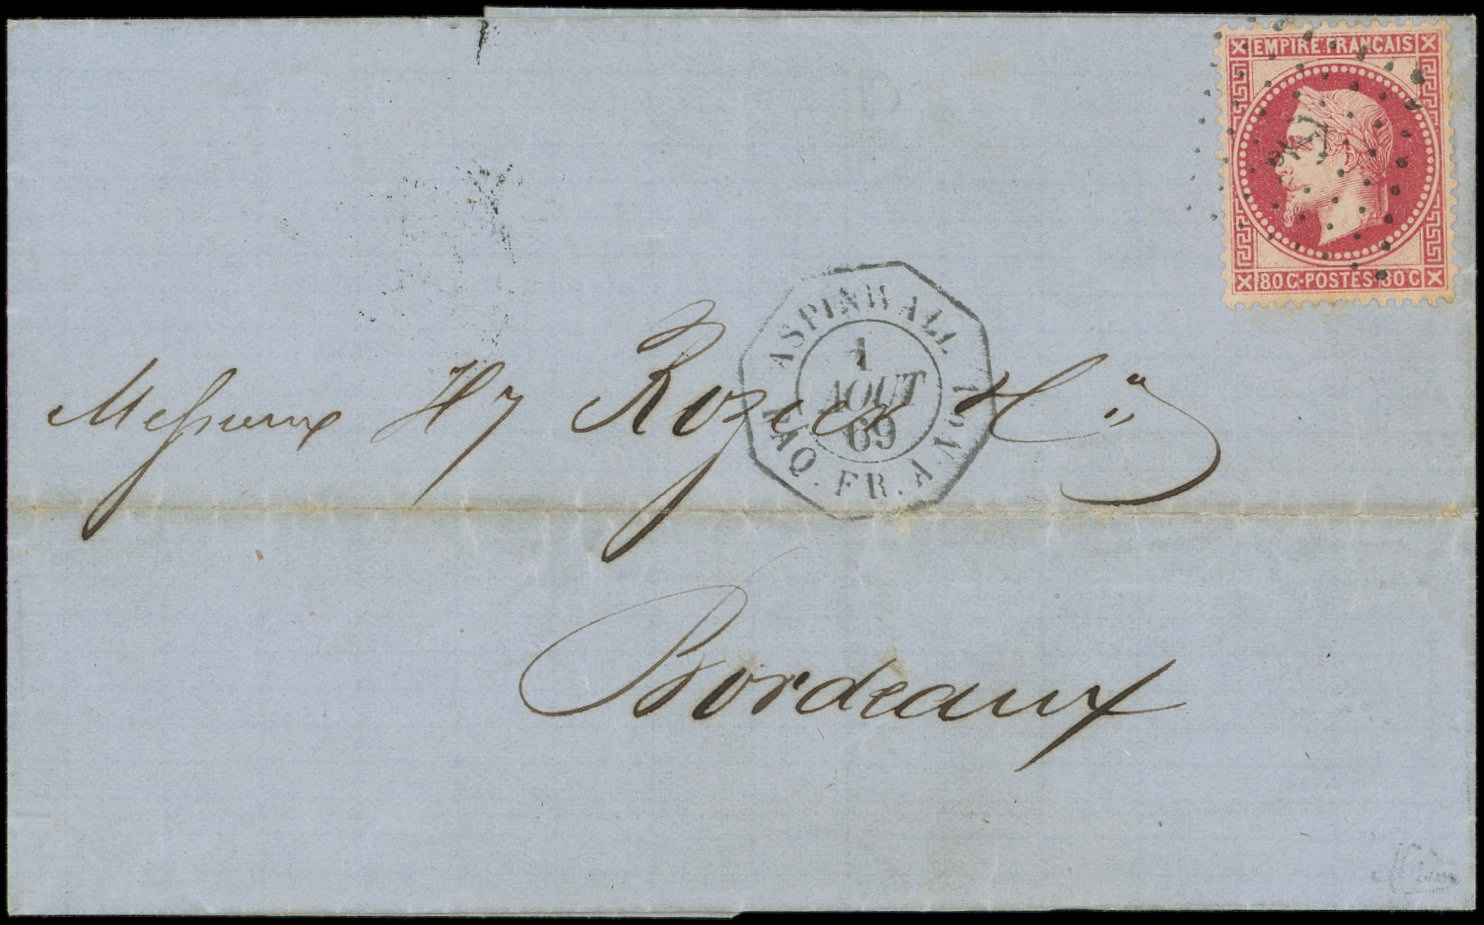 EMPIRE FRANÇAIS
80 C. POSTES 80 C
ASPINWALL
1
AOUT
69
PAQ. FR. A. No 1
Messieurs Hy Rozier & Cie
Bordeaux